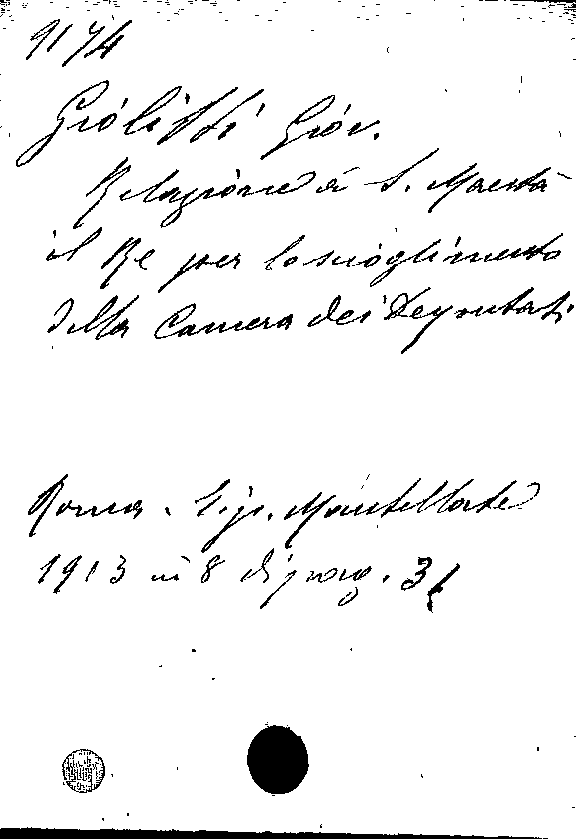 9174
Giolitti Giov.
Relazione a S. Maestà
il Re per lo scioglimento
della Camera dei Deputati
Roma. Tip. Mantellate
1913 in 8 di pag. 31